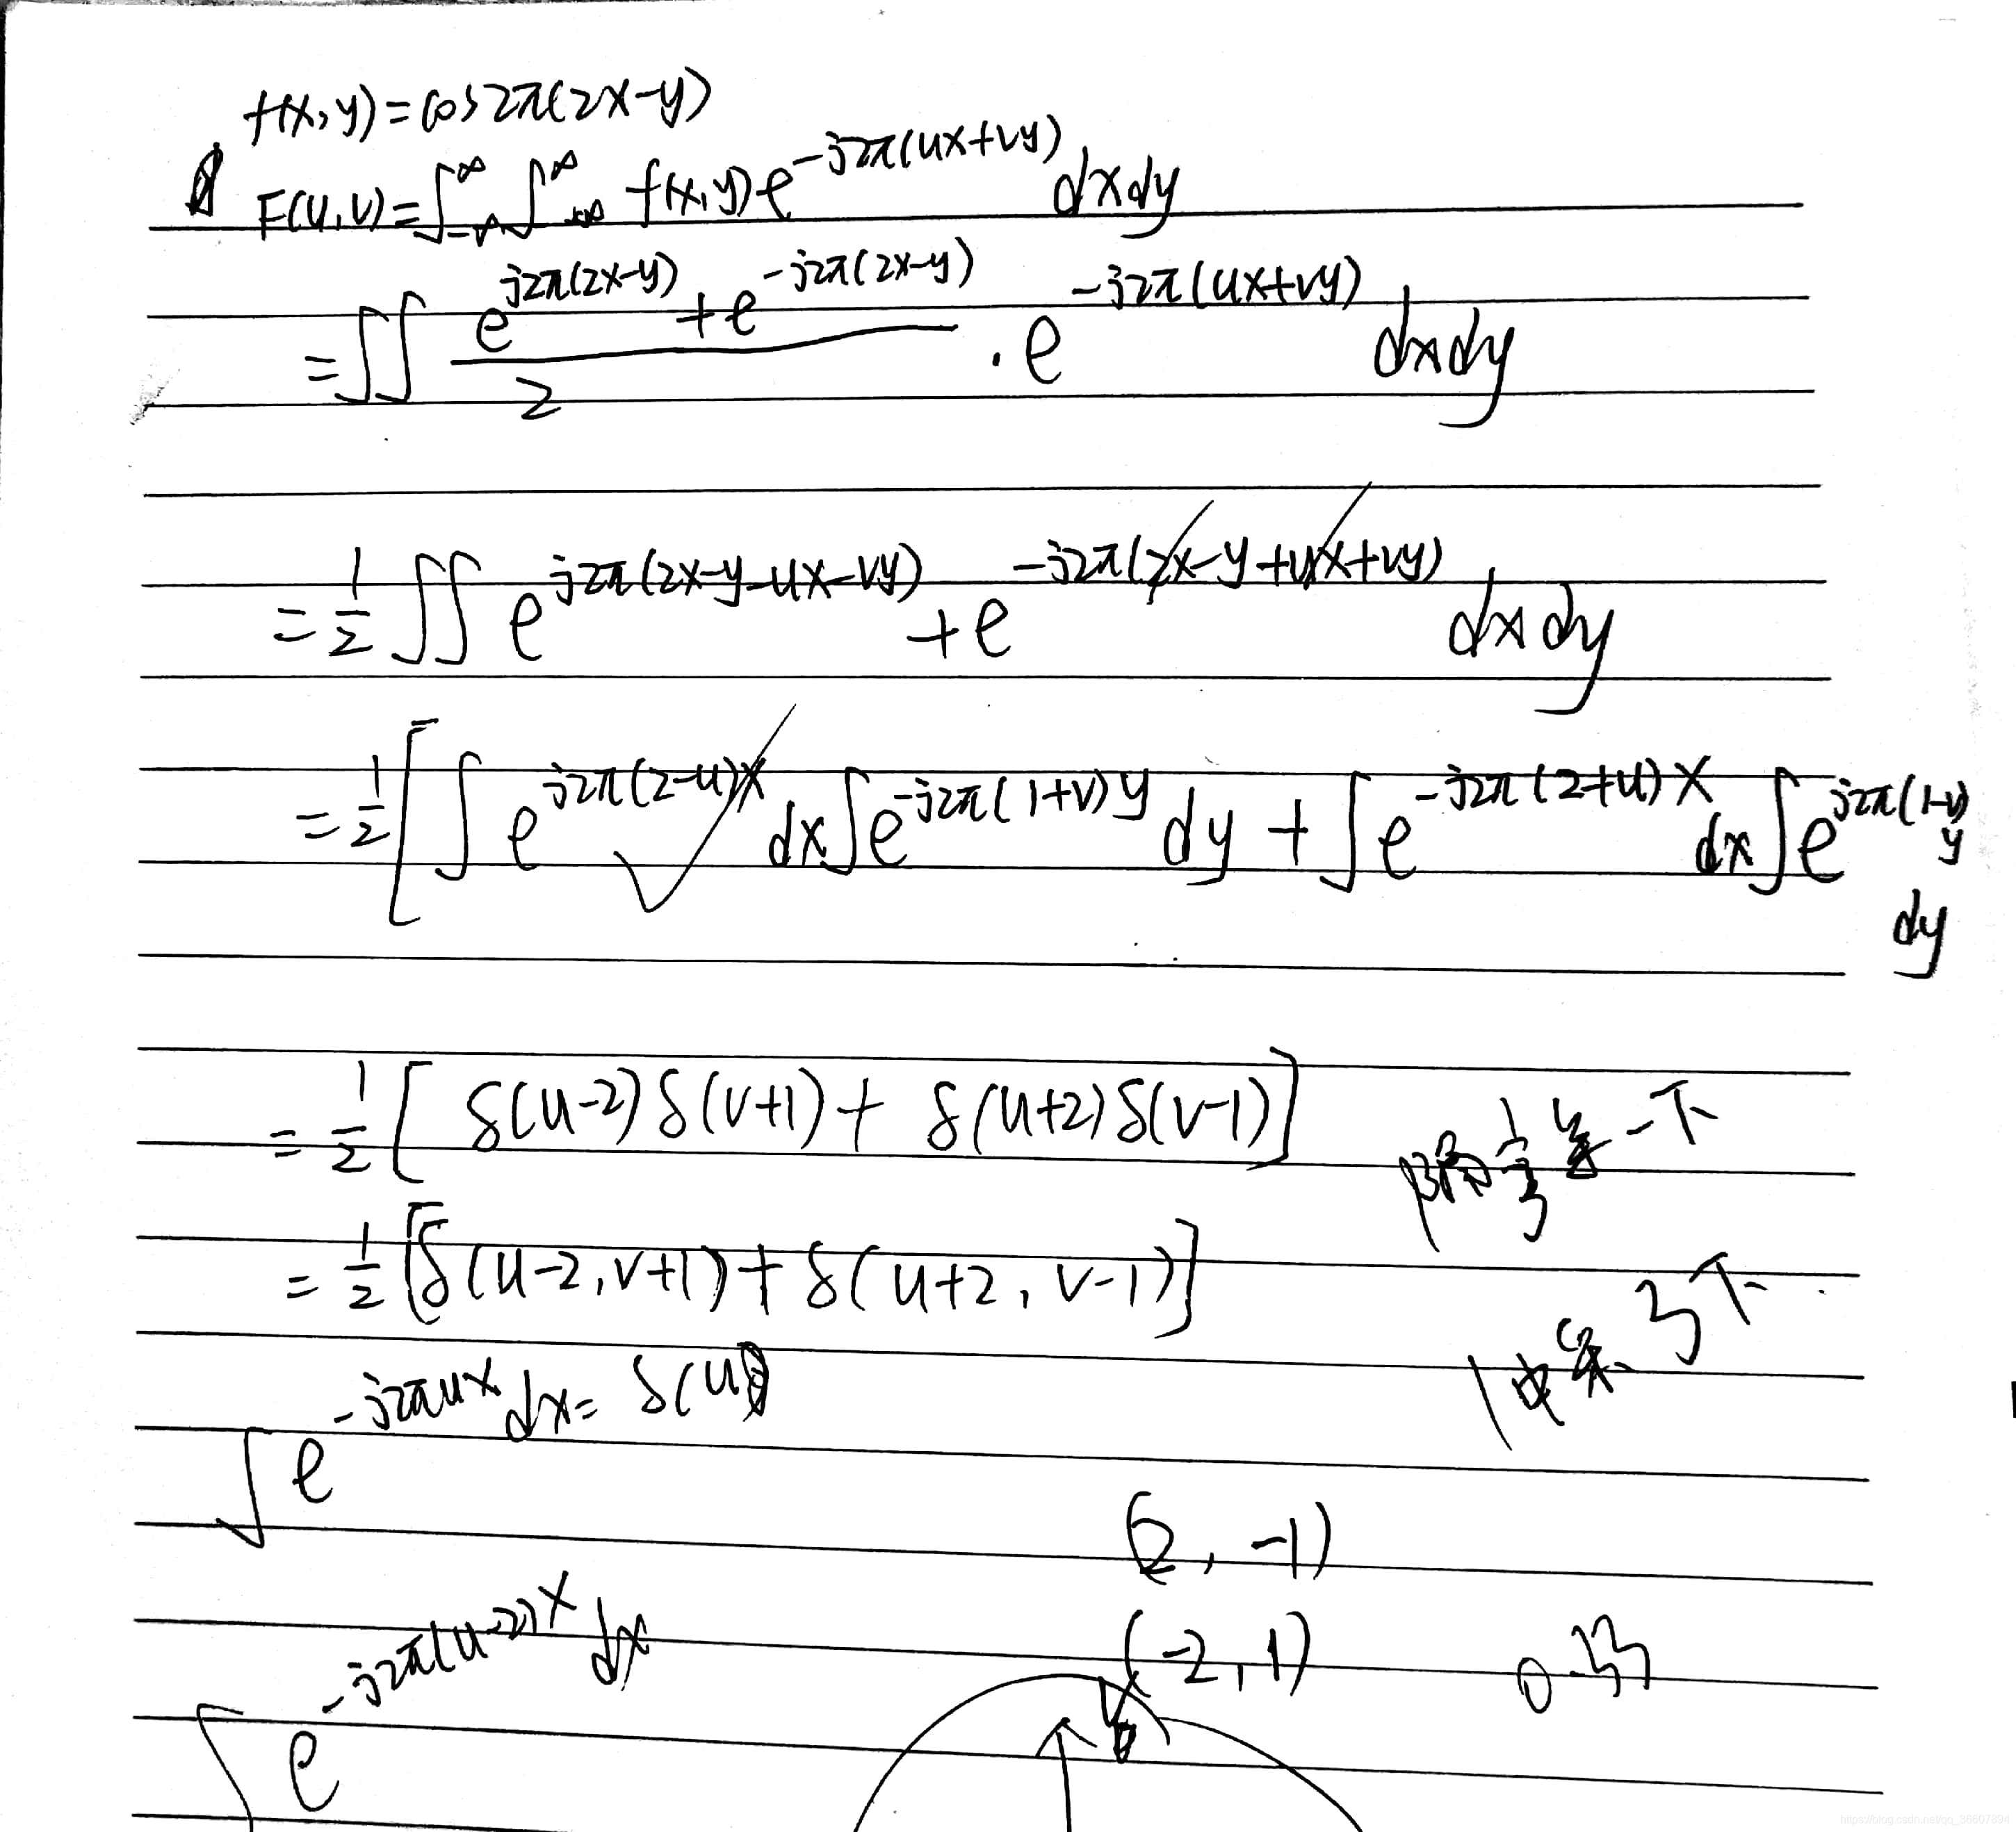 f(x,y)=cos2π(2x-y)
F(u,v)=∫_{-∞}^{∞}∫_{-∞}^{∞} f(x,y)e^{-j2π(ux+vy)}dxdy
=∬ (e^{j2π(2x-y)}+e^{-j2π(2x-y)})/2 · e^{-j2π(ux+vy)} dxdy
=1/2 ∬ e^{j2π(2x-y-ux-vy)} + e^{-j2π(2x-y+ux+vy)} dxdy
=1/2 [ ∫ e^{j2π(2-u)x} dx ∫ e^{-j2π(1+v)y} dy + ∫ e^{-j2π(2+u)x} dx ∫ e^{j2π(1-v)y} dy
=1/2 [ δ(u-2)δ(v+1) + δ(u+2)δ(v-1) ]
=1/2 [ δ(u-2,v+1) + δ(u+2,v-1) ]
∫ e^{-j2πux} dx = δ(u)
(2,-1)
∫ e^{-j2π(u-2)x} dx
(-2,1)
0.33
https://blog.csdn.net/qq_36607894